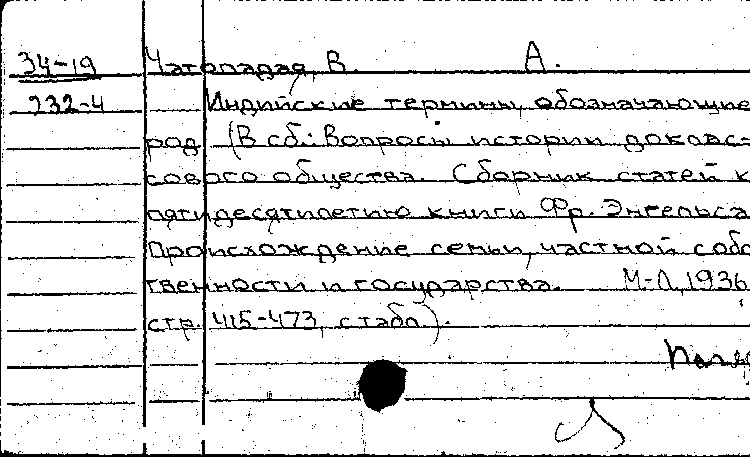 34-19 Чатопадая, В. А.
232-4 Индийские термины, обозначающие
род (В сб.: Вопросы истории доклас-
сового общества. Сборник статей к
пятидесятилетию книги Фр. Энгельса
Происхождение семьи, частной собс
твенности и государства. М-Л, 1936
стр. 415-473, с табл.).